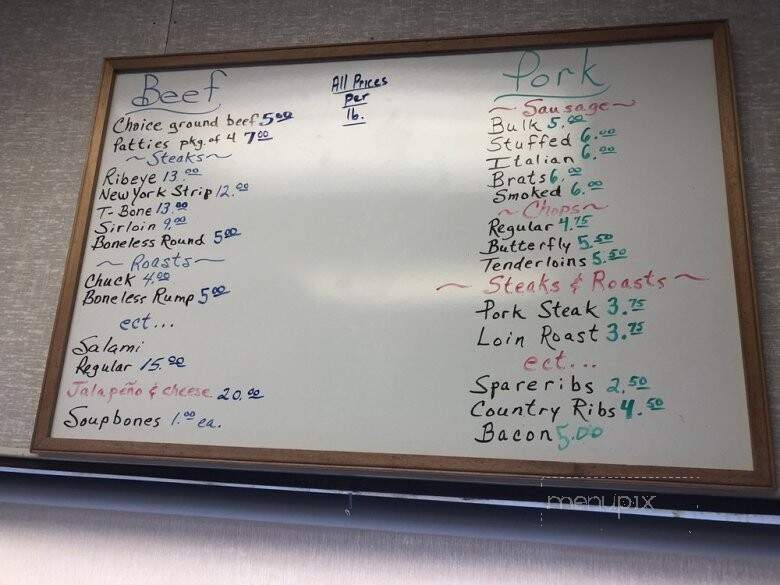 Beef
Choice ground beef 5.00
Patties pkg. of 4 7.00
~ Steaks ~
Ribeye 13.00
New York Strip 12.00
T-Bone 13.00
Sirloin 9.00
Boneless Round 5.00
~ Roasts ~
Chuck 4.00
Boneless Rump 5.00
ect...
Salami
Regular 15.00
Jalapeño & cheese 20.00
Soupbones 1.00 ea.
All Prices
Per
lb.
Pork
~ Sausage ~
Bulk 5.00
Stuffed 6.00
Italian 6.00
Brats 6.00
Smoked 6.00
~ Chops ~
Regular 4.75
Butterfly 5.50
Tenderloins 5.50
~ Steaks & Roasts ~
Pork Steak 3.75
Loin Roast 3.75
ect...
Spareribs 2.50
Country Ribs 4.50
Bacon 5.00
menupix